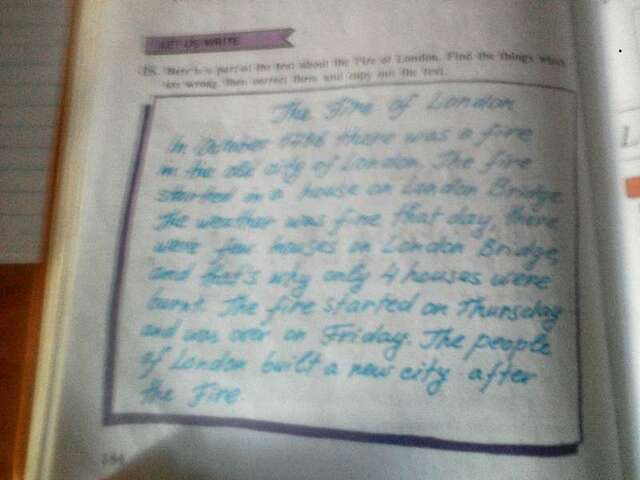 LET US WRITE
18. Here is a part of the text about the Fire of London. Find the things which
are wrong. Then correct them and copy out the text.
The Fire of London
In October there was a fire
in the old city of London. The fire
started in a house on London Bridge.
The weather was fine that day, there
were few houses on London Bridge,
and that's why only 4 houses were
burnt. The fire started on Thursday
and was over on Friday. The people
of London built a new city after
the Fire
184
L